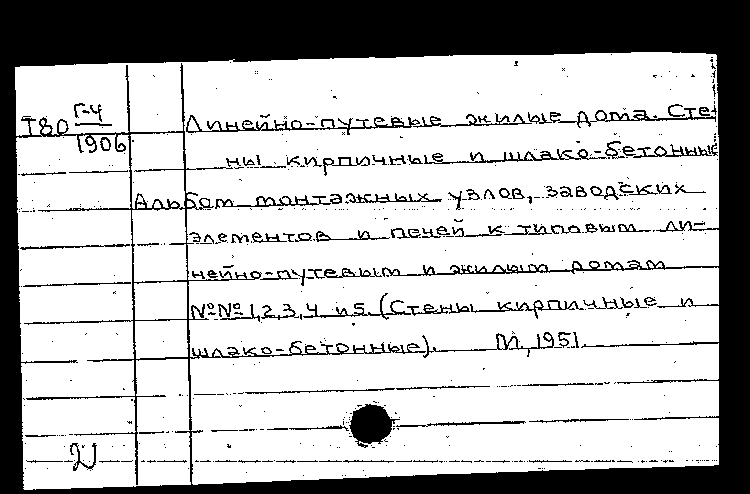 Т80 Г-4/1906
Линейно-путевые жилые дома. Сте-
ны кирпичные и шлако-бетонные
Альбом монтажных узлов, заводских
элементов и печей к типовым ли-
нейно-путевым и жилым домам
№№ 1,2,3,4 и 5. (Стены кирпичные и
шлако-бетонные). М., 1951.